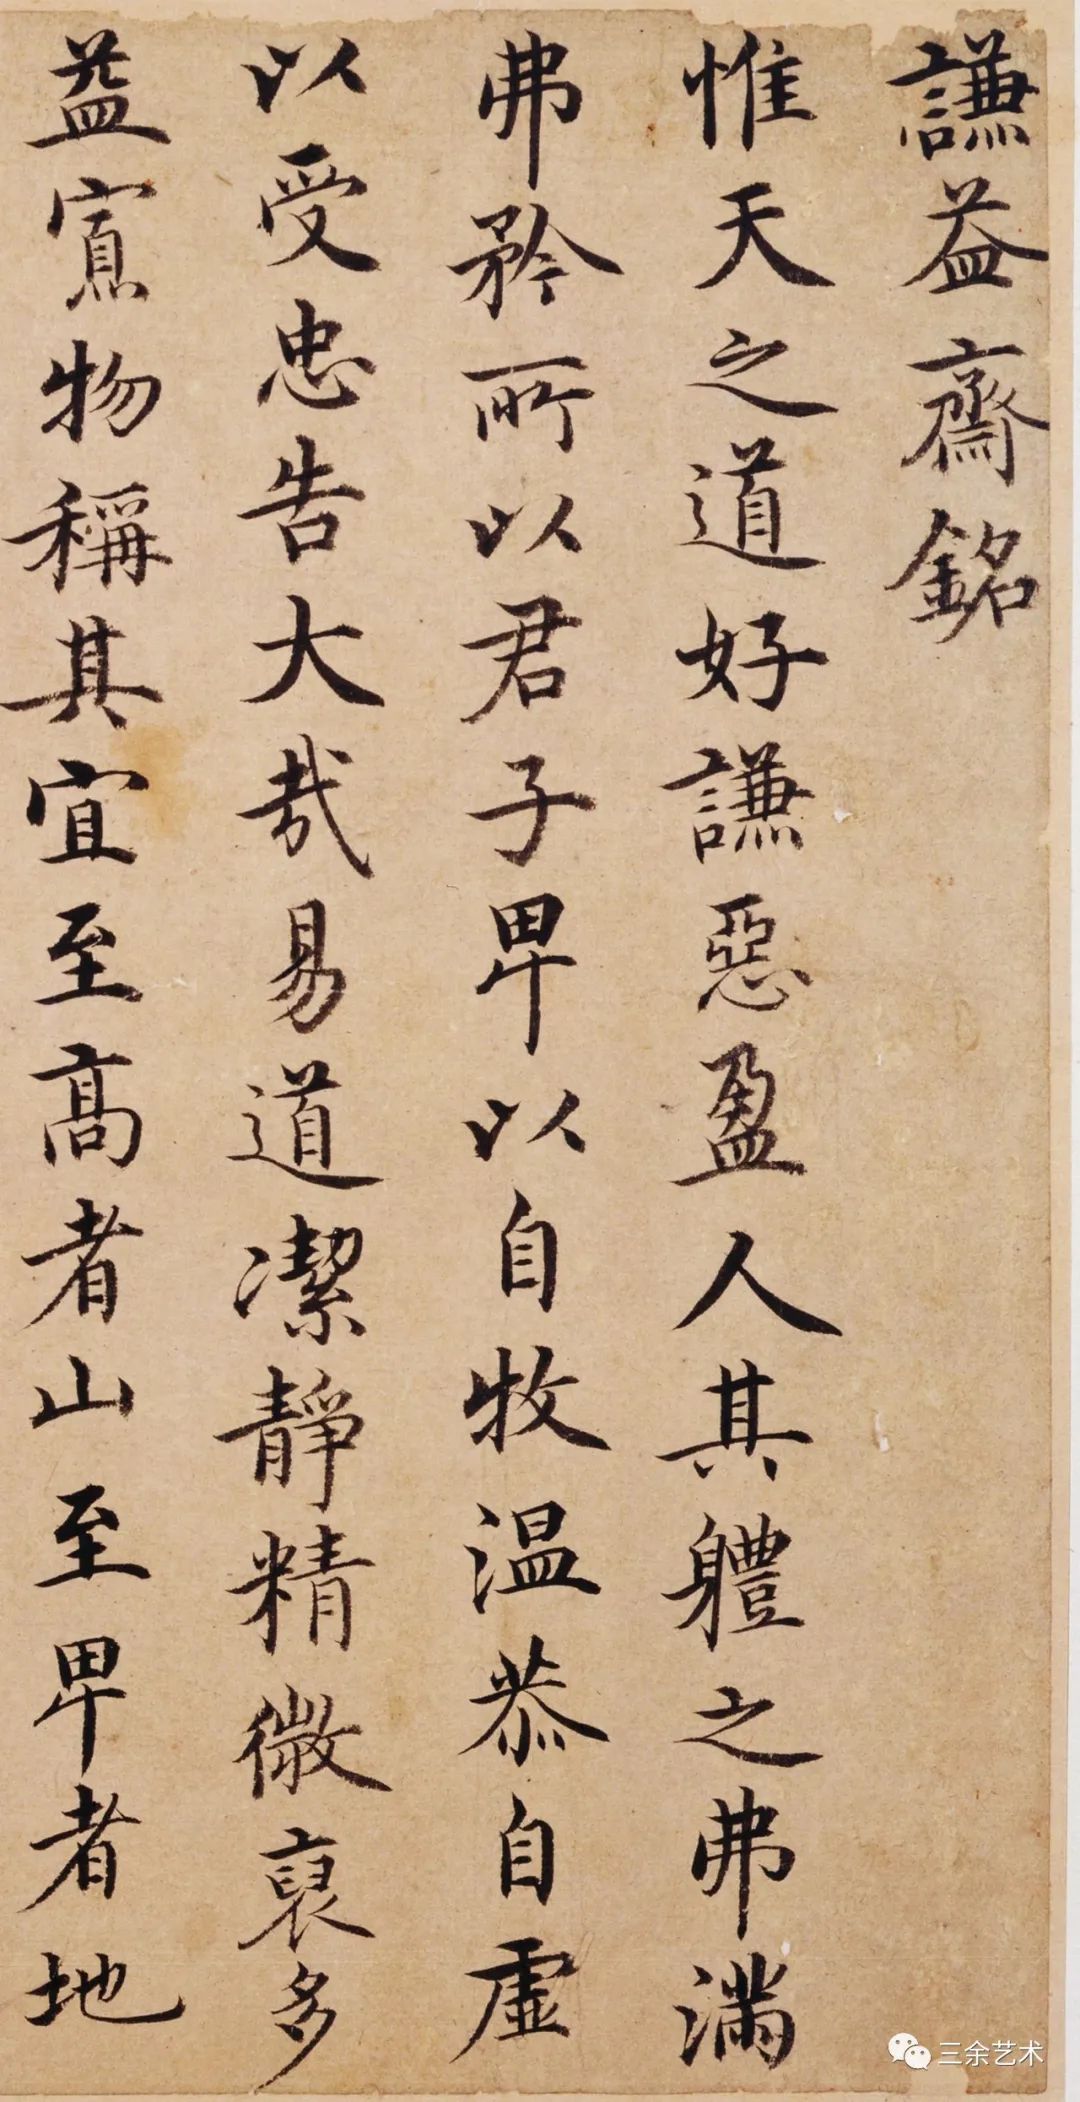 謙益齋銘
惟天之道好謙惡盈人其軆之弗滿
弗矜所以君子卑以自牧温恭自虛
以受忠告大哉易道潔靜精微裒多
益寡物稱其宜至高者山至卑者地
三余艺术